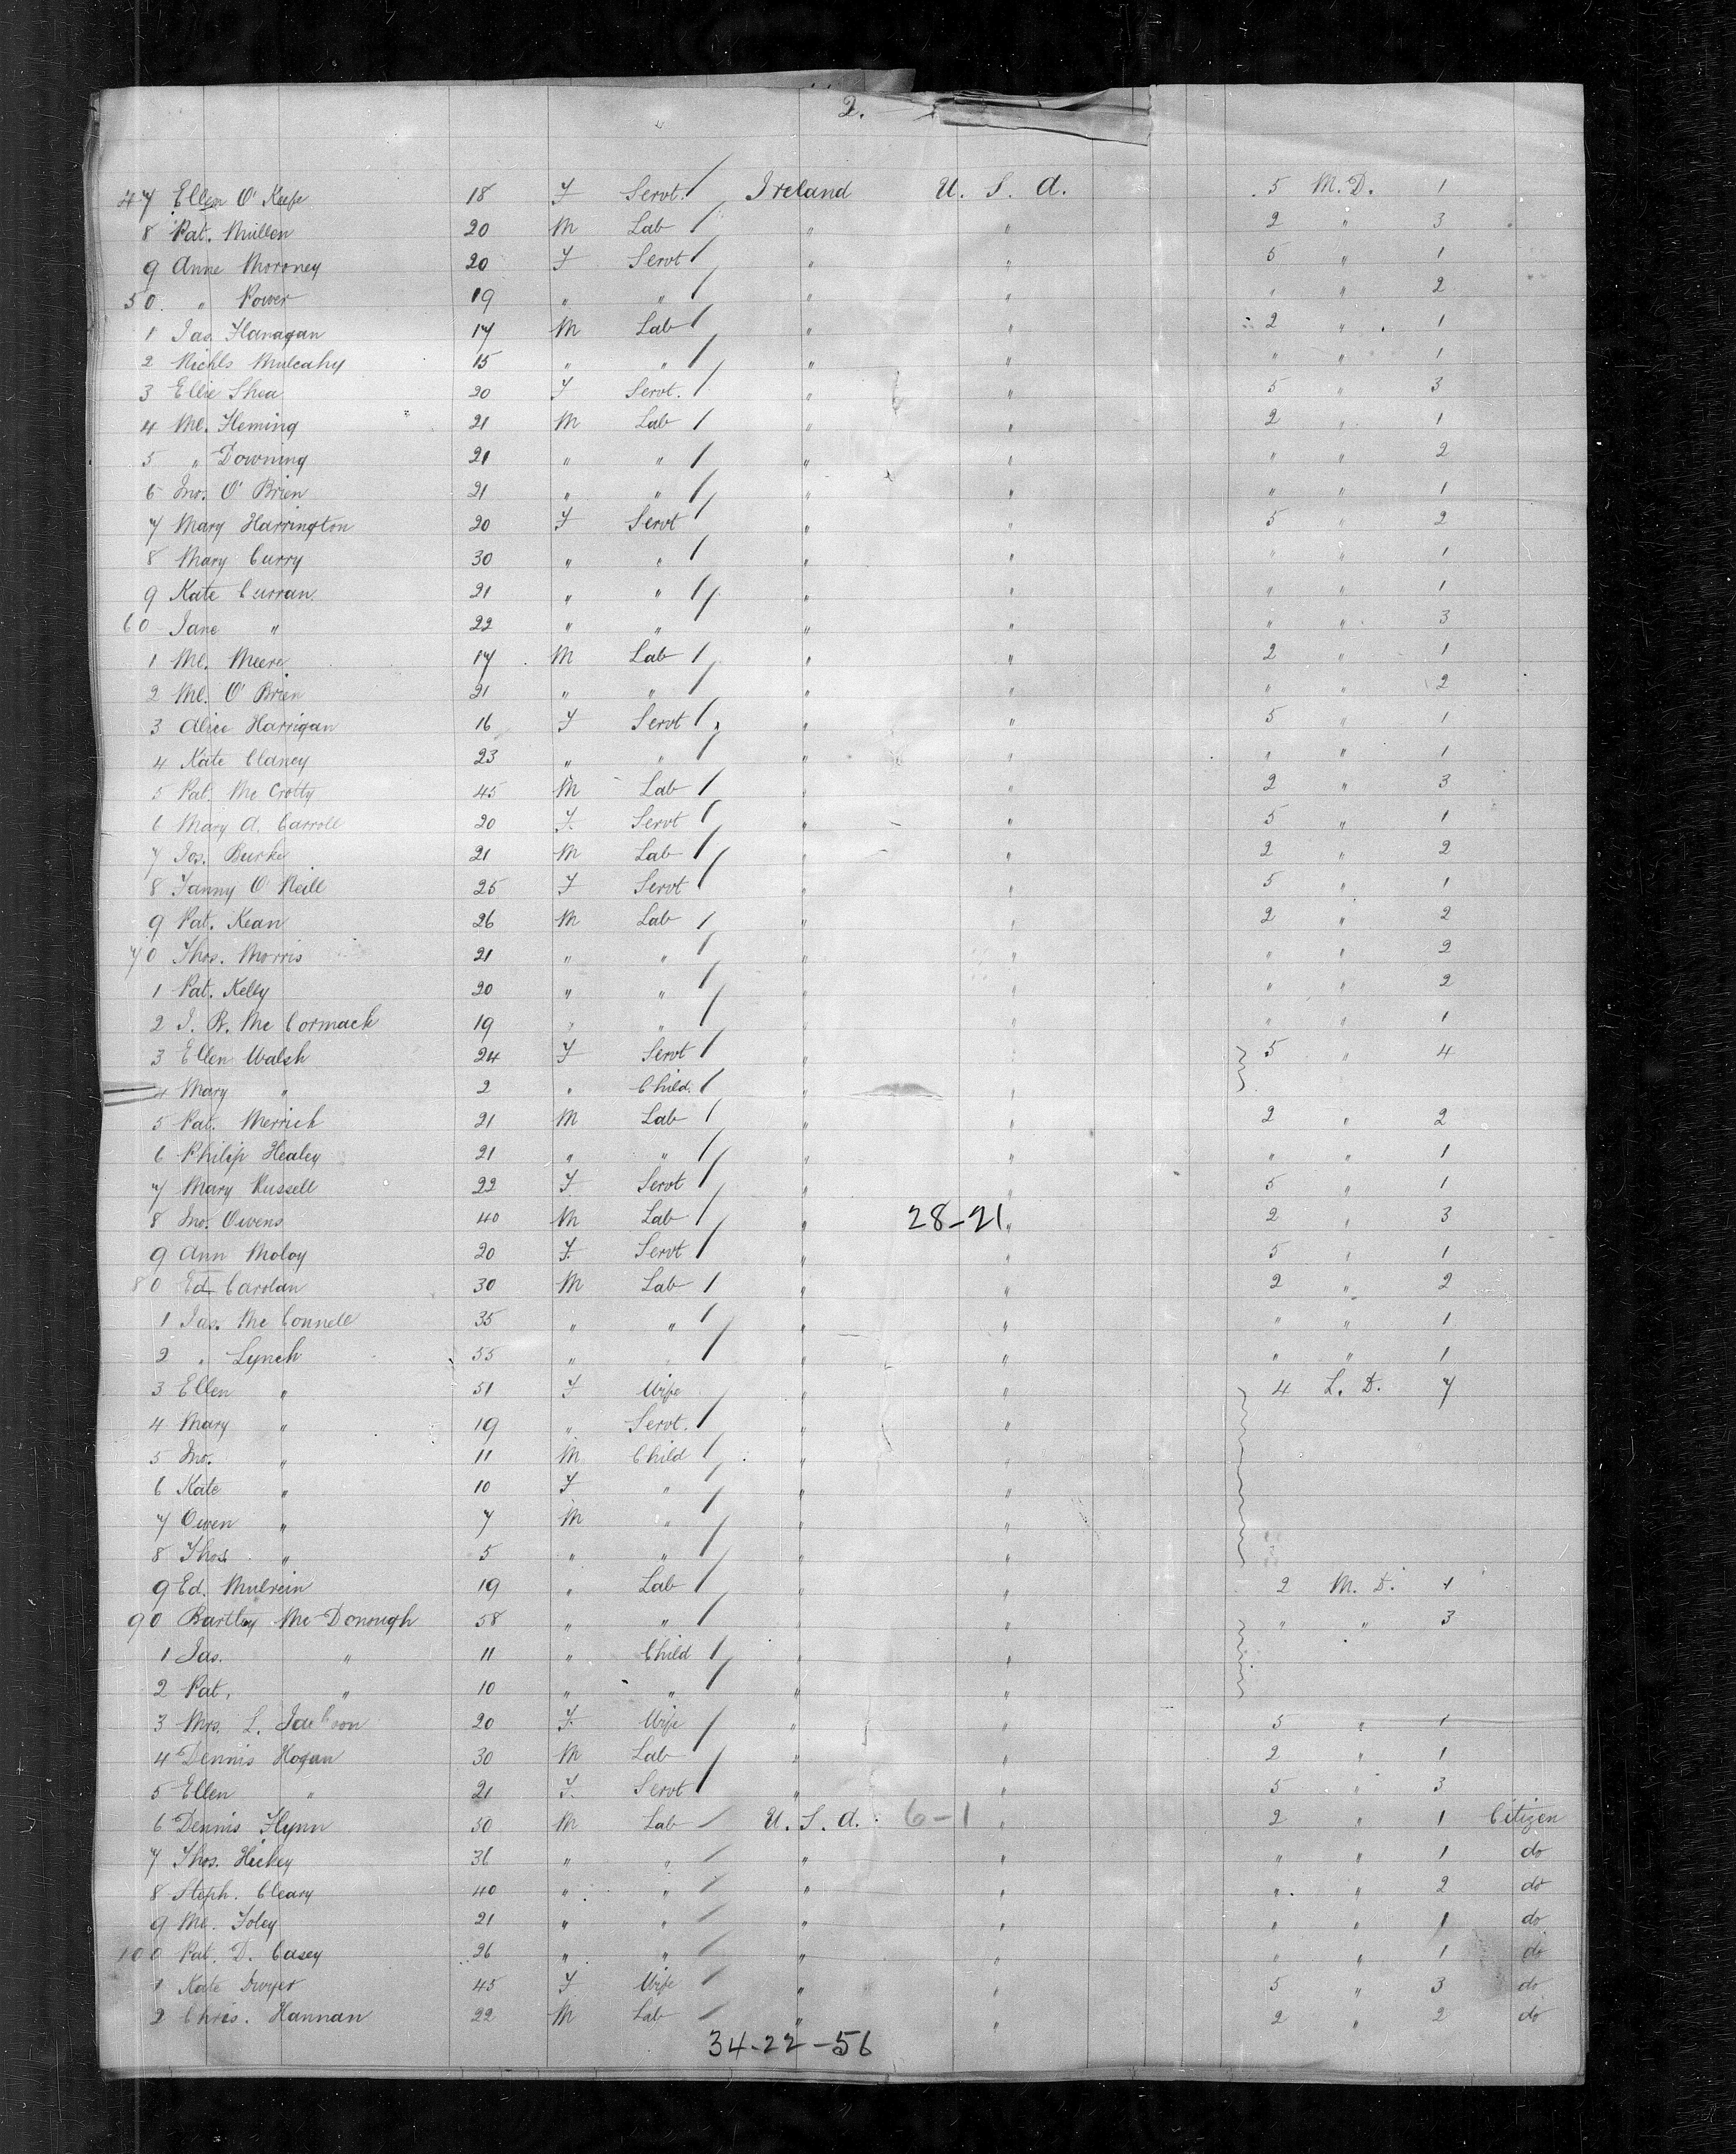 2.
47 Ellen O' Keefe 18 F Servt. / Ireland U. S. A. 5 M. D. 1
8 Pat. Mullen 20 M Lab / " " 2 " 3
9 Anne Moroney 20 F Servt / " " 5 " 1
50. " Power 19 " " / " " " " 2
1 Jas. Flanagan 17 M Lab / " " 2 " 1
2 Michls Mulcahy 15 " " / " " " " 1
3 Ellie Shea 20 F Servt. / " " 5 " 3
4 Ml. Fleming 21 M Lab / " " 2 " 1
5 " Downing 21 " " / " " " " 2
6 Jno. O' Brien 21 " " / " " " " 1
7 Mary Harrington 20 F Servt / " " 5 " 2
8 Mary Curry 30 " " / " " " " 1
9 Kate Curran 21 " " / " " " " 1
60 Jane " 22 " " / " " " " 3
1 Ml. Meere 17 M Lab / " " 2 " 1
2 Ml. O' Brien 21 " " / " " " " 2
3 Alice Harrigan 16 F Servt / " " 5 " 1
4 Kate Clancy 23 " " / " " " " 1
5 Pat. Mc Crotty 45 M Lab / " " 2 " 3
6 Mary A. Carroll 20 F. Servt / " " 5 " 1
7 Jos. Burke 21 M Lab / " " 2 " 2
8 Fanny O Neill 25 F Servt / " " 5 " 1
9 Pat. Kean 26 M Lab / " " 2 " 2
70 Thos. Morris 21 " " / " " " " 2
1 Pat. Kelly 20 " " / " " " " 2
2 J. R. Mc Cormack 19 " " / " " " " 1
3 Ellen Walsh 24 F Servt / " " 5 " 4
4 Mary " 2 " Child. / " "
5 Pat. Merrick 21 M Lab / " " 2 " 2
6 Philip Healey 21 " " / " " " " 1
7 Mary Russell 22 F Servt / " " 5 " 1
8 Jno. Owens 40 M Lab / " 28-21 " 2 " 3
9 Ann Moloy 20 F. Servt / " " 5 " 1
80 Ed Carolan 30 M Lab / " " 2 " 2
1 Jas. Mc Connell 35 " " / " " " " 1
2 " Lynch 55 " " / " " " " 1
3 Ellen " 51 F Wife " " 4 L. D. 7
4 Mary " 19 " Servt. / " "
5 Jno. " 11 M Child / " "
6 Kate " 10 F " / " "
7 Owen " 7 M " / " "
8 Thos. " 5 " " / " "
9 Ed. Mulvein 19 " Lab / " " 2 M. D. 1
90 Bartley Mc Donough 58 " " / " " " " 3
1 Jas. " 11 " Child / " "
2 Pat. " 10 " " / " "
3 Mrs. L. 20 F. Wife / " " 5 " 1
4 Dennis Hogan 30 M Lab / " " 2 " 1
5 Ellen " 21 F. Servt / " " 5 " 3
6 Dennis Flynn 50 M Lab / U. S. A. 6-1 " 2 " 1 Citizen
7 Thos. Hickey 36 " " / " " " " 1 do
8 Steph. Cleary 40 " " / " " " " 2 do
9 Ml. Foley 21 " " / " " " " 1 do
100 Pat. D. Casey 26 " " / " " " " 1 do
1 Kate Dwyer 45 F Wife / " " 5 " 3 do
2 Chris. Hannan 22 M Lab / " " 2 " 2 do
34-22-56